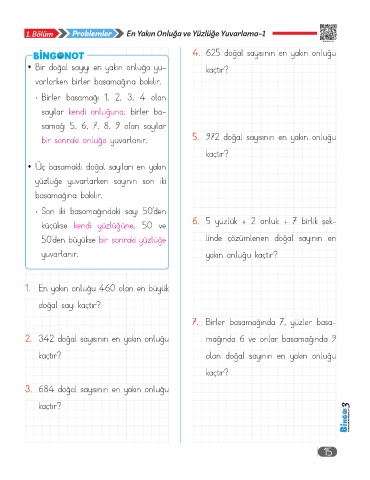 1. Bölüm Problemler En Yakın Onluğa ve Yüzlüğe Yuvarlama-1
BİNGONOT
• Bir doğal sayıyı en yakın onluğa yu-
varlarken birler basamağına bakılır.
• Birler basamağı 1, 2, 3, 4 olan
sayılar kendi onluğuna; birler ba-
samağı 5, 6, 7, 8, 9 olan sayılar
bir sonraki onluğa yuvarlanır.
• Üç basamaklı doğal sayıları en yakın
yüzlüğe yuvarlarken sayının son iki
basamağına bakılır.
• Son iki basamağındaki sayı 50'den
küçükse kendi yüzlüğüne, 50 ve
50'den büyükse bir sonraki yüzlüğe
yuvarlanır.
1. En yakın onluğu 460 olan en büyük
doğal sayı kaçtır?
2. 342 doğal sayısının en yakın onluğu
kaçtır?
3. 684 doğal sayısının en yakın onluğu
kaçtır?
4. 625 doğal sayısının en yakın onluğu
kaçtır?
5. 972 doğal sayısının en yakın onluğu
kaçtır?
6. 5 yüzlük + 2 onluk + 7 birlik şek-
linde çözümlenen doğal sayının en
yakın onluğu kaçtır?
7. Birler basamağında 7, yüzler basa-
mağında 6 ve onlar basamağında 9
olan doğal sayının en yakın onluğu
kaçtır?
BİNGO 3
15